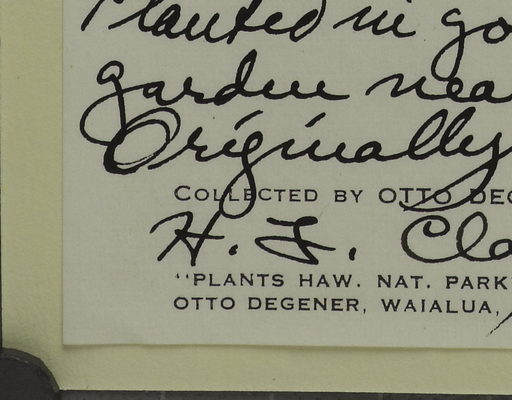 Planted in go
garden nea
Originally
COLLECTED BY OTTO DEG
H. F. Cla
"PLANTS HAW. NAT. PARK"
OTTO DEGENER, WAIALUA,